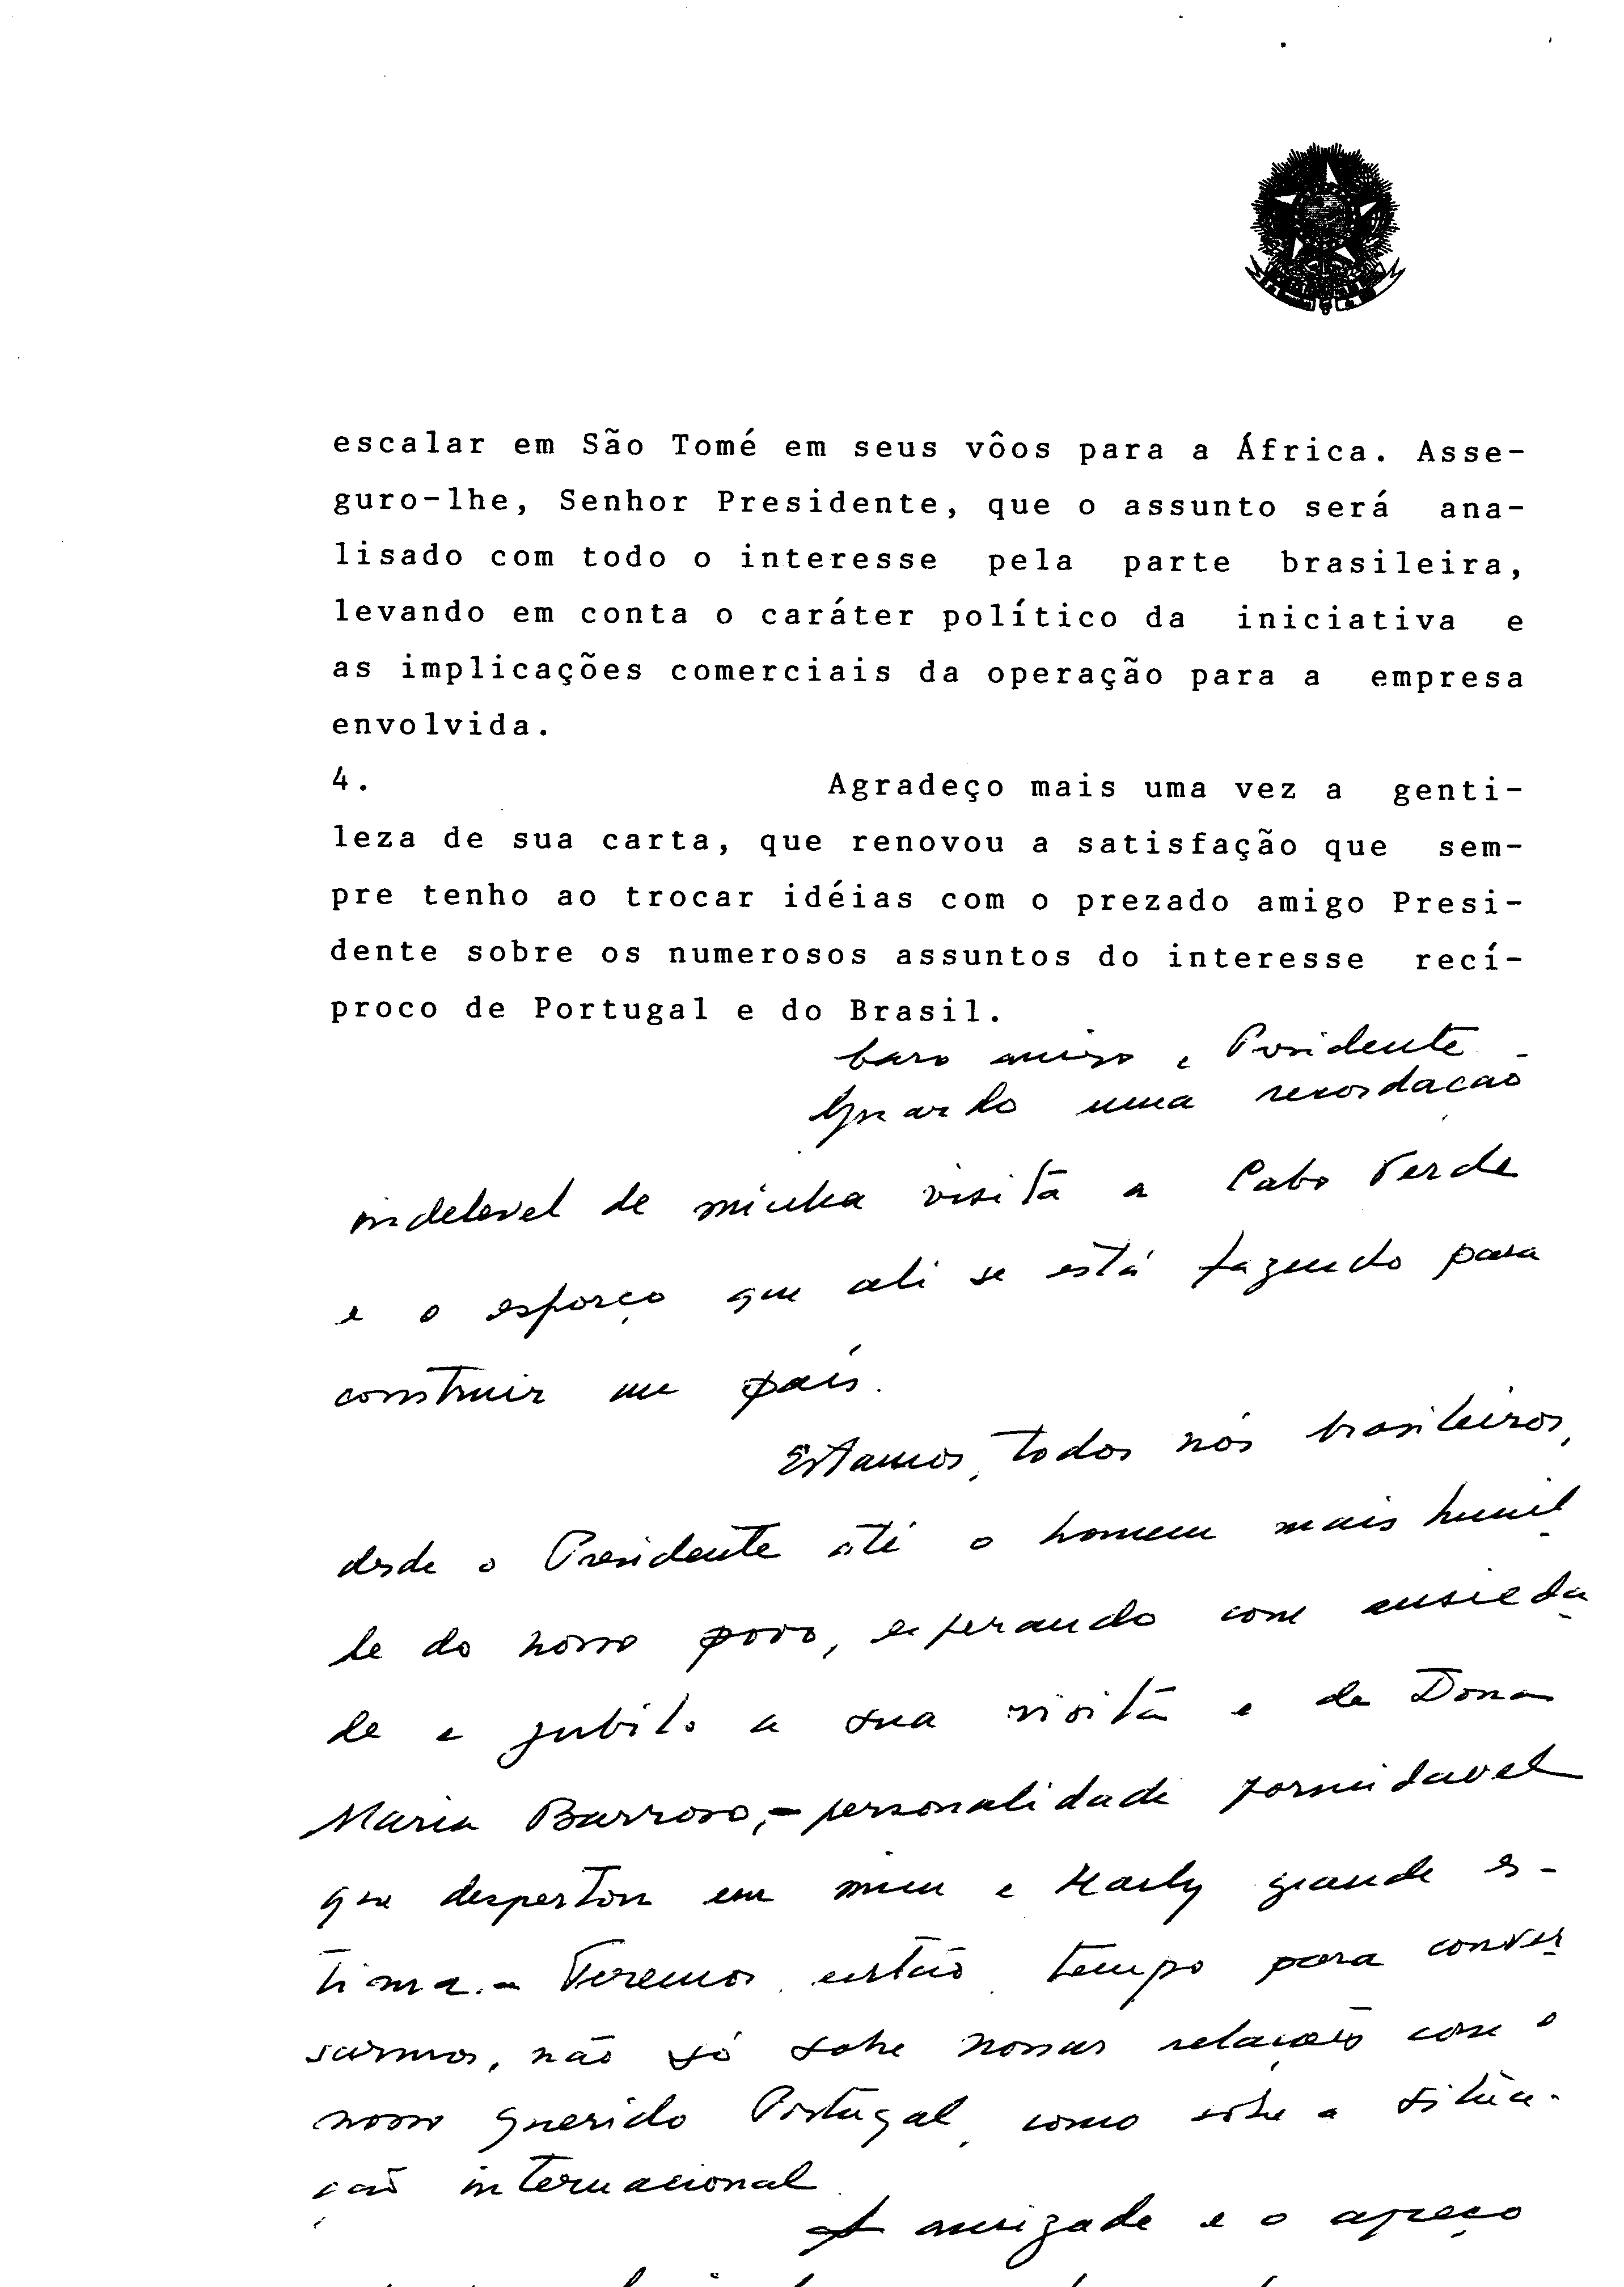 escalar em São Tomé em seus vôos para a África. Asse-
guro-lhe, Senhor Presidente, que o assunto será ana-
lisado com todo o interesse pela parte brasileira,
levando em conta o caráter político da iniciativa e
as implicações comerciais da operação para a empresa
envolvida.
4. Agradeço mais uma vez a genti-
leza de sua carta, que renovou a satisfação que sem-
pre tenho ao trocar idéias com o prezado amigo Presi-
dente sobre os numerosos assuntos do interesse recí-
proco de Portugal e do Brasil.
Caro amigo e Presidente
Guardo uma recordação
indelevel de minha visita a Cabo Verde
e o esforço que ali se está fazendo para
construir um país.
Estamos, todos nós brasileiros,
desde o Presidente até o homem mais humil
de do nosso povo, esperando com ansieda
de e jubilo a sua visita e de Dona
Maria Barroso, - personalidade formidavel
que despertou em mim e Marly grande es-
tima. - Teremos, então, tempo para conver
sarmos, não só sobre nossas relações com o
nosso querido Portugal, como sobre a situa-
ção internacional.
A amizade e o apreço